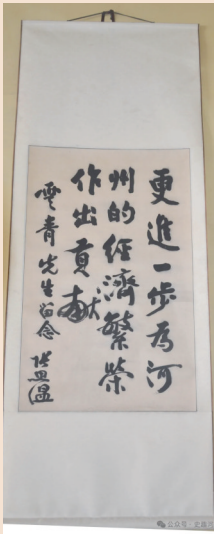 更進一步為河
州的经濟繁荣
作出贡献
雲青先生留念
张思温
公众号